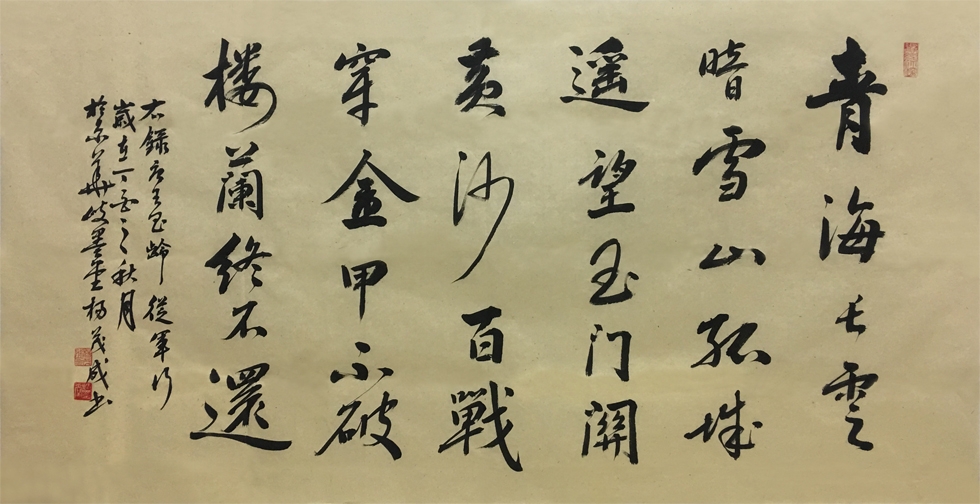 青海长雲
暗雪山孤城
遥望玉门關
黄沙百戰
穿金甲不破
楼蘭終不還
右錄唐王昌齡從軍行
歲在丁酉之秋月
於京華墨堂杨茂书